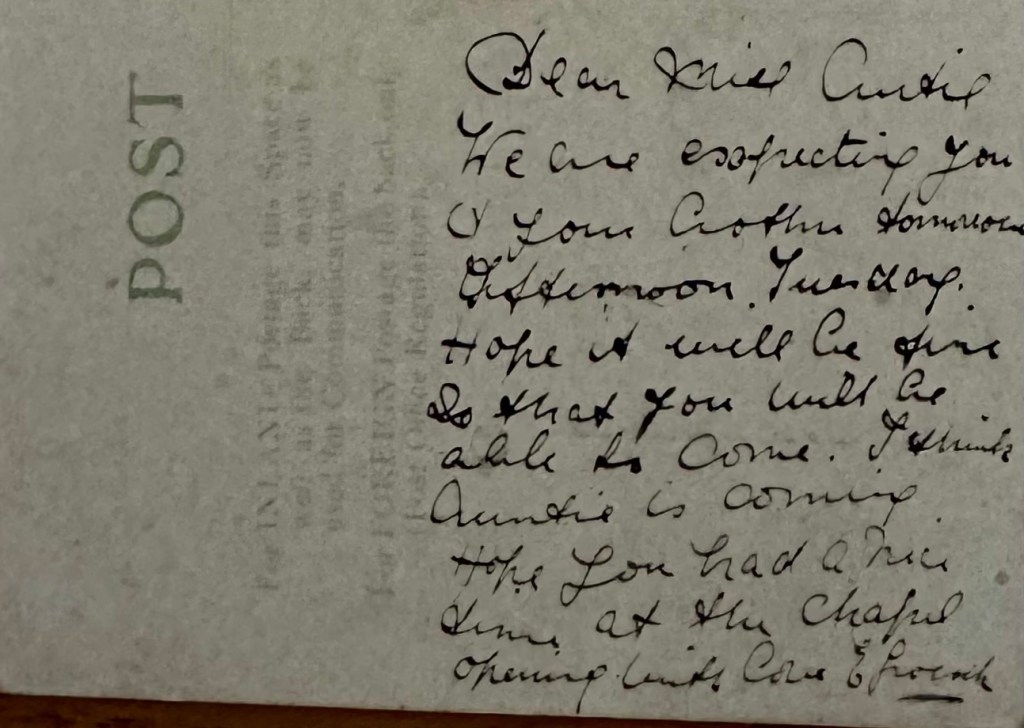 POST
For INLAND Postage this Space, as
well as the Back, may now be
used for Communication.
For FOREIGN Postage the Back only.
(Post Office Regulation).
Dear Miss Curtis
We are expecting you
& your tomorrow
Afternoon, Tuesday.
Hope it will be fine
So that you will be
able to come. I think
Auntie is coming
Hope you had a nice
time at the Chapel
opening. with Love E